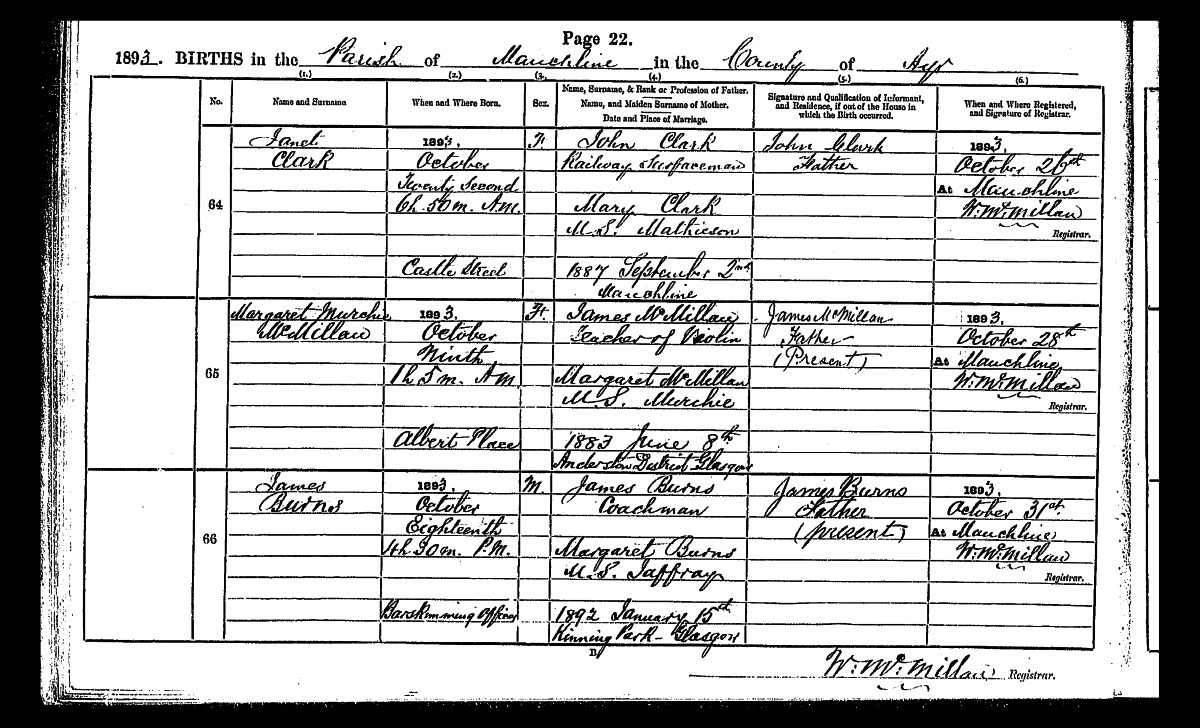 Page 22.
1893. BIRTHS in the Parish of Mauchline in the County of Ayr
(1.) (2.) (3.) (4.) (5.) (6.)
No.
Name and Surname
When and Where Born.
Sex.
Name, Surname, & Rank or Profession of Father.
Name, and Maiden Surname of Mother.
Date and Place of Marriage.
Signature and Qualification of Informant,
and Residence, if out of the House in
which the Birth occurred.
When and Where Registered,
and Signature of Registrar.
64
Janet
Clark
1893,
October
Twenty Second
6h. 50m. A.M.
Castle Street
F.
John Clark
Railway Surfaceman
Mary Clark
M.S. Mathieson
1887 September 2nd
Mauchline
John Clark
Father
1893,
October 26th
At Mauchline
W. McMillan
Registrar.
65
Margaret Murchie
McMillan
1893,
October
Ninth
1h 5m. A.M.
Albert Place
F.
James McMillan
Teacher of Violin
Margaret McMillan
M.S. Murchie
1883 June 8th
Anderston District Glasgow
James McMillan
Father
(Present)
1893,
October 28th
At Mauchline
W. McMillan
Registrar.
66
James
Burns
1893,
October
Eighteenth
4h 30m. P.M.
Barskimming Offices
M.
James Burns
Coachman
Margaret Burns
M.S. Jaffray
1892 January 15th
Kinning Park - Glasgow
James Burns
Father
(present)
1893,
October 31st
At Mauchline
W. McMillan
Registrar.
W. McMillan Registrar.